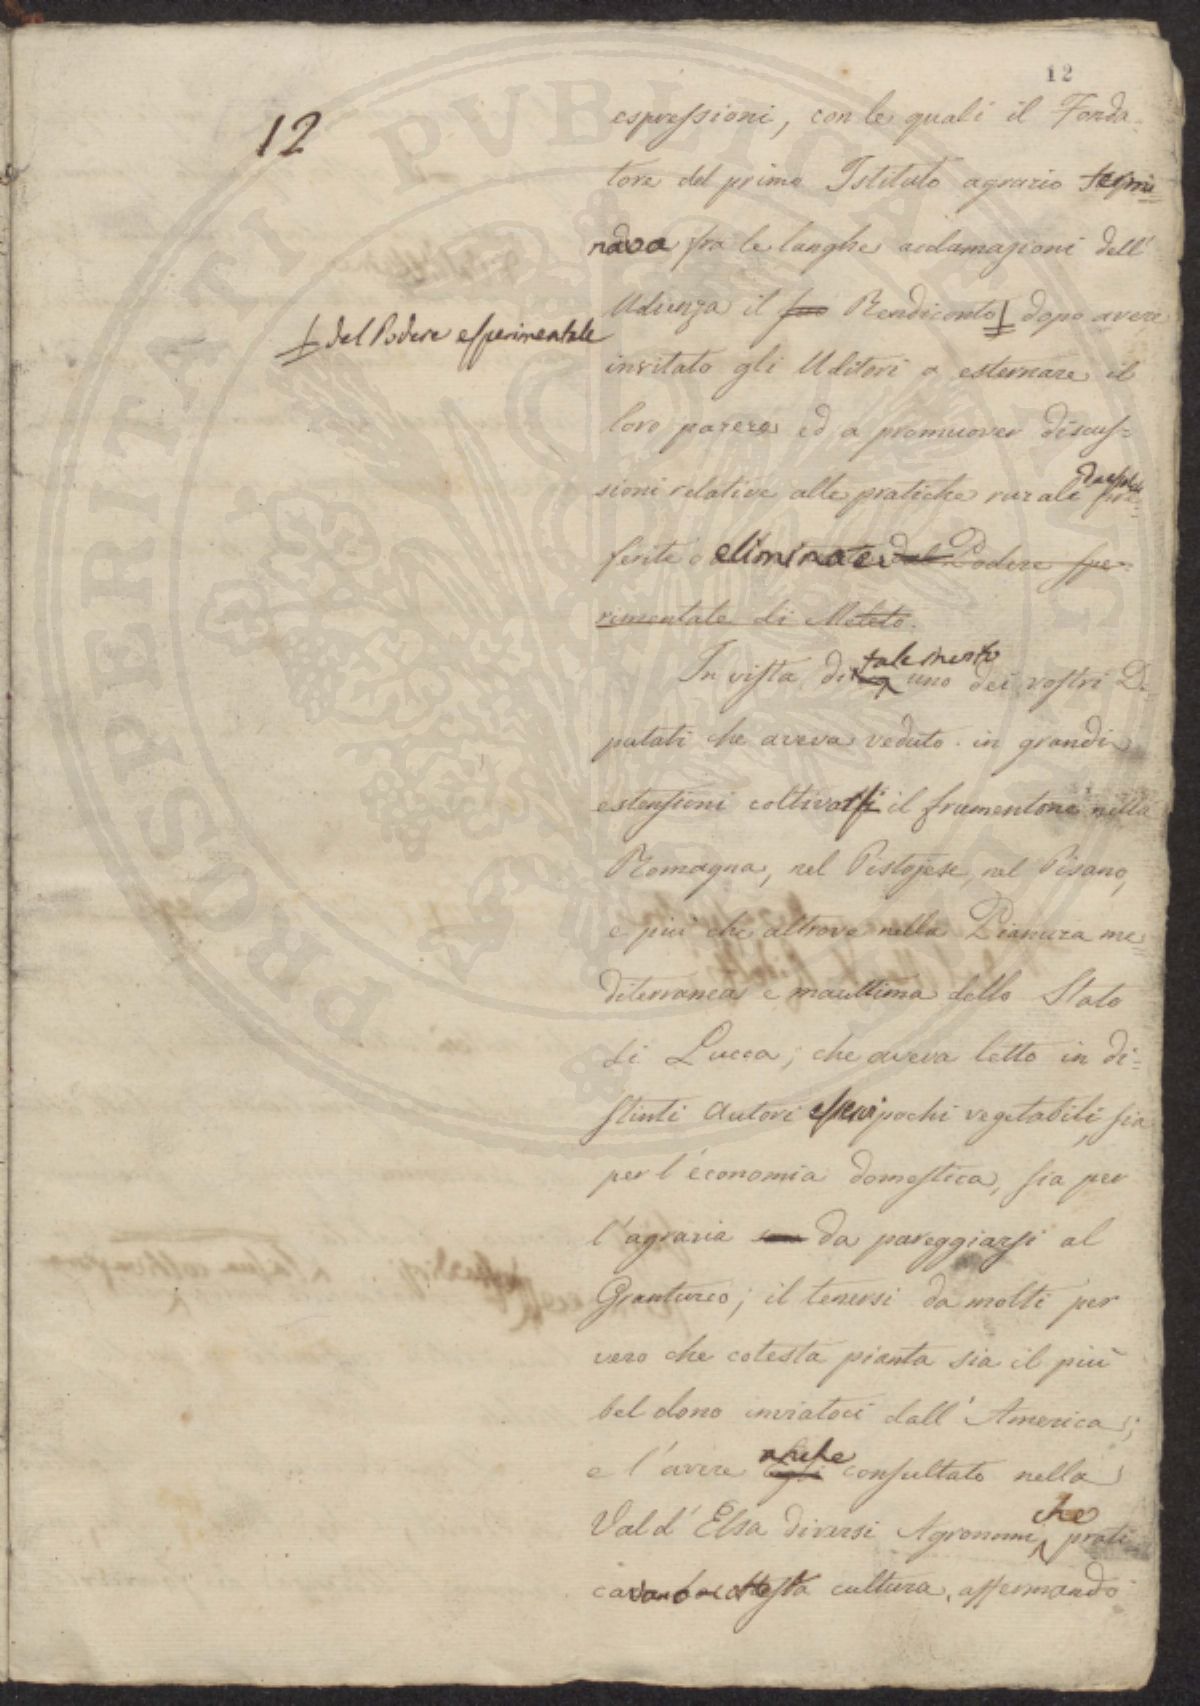 12
12
espressioni, con le quali il Fonda-
tore del primo Istituto agrario termi-
nava fra le lunghe acclamazioni dell'
Udienza il suo Rendiconto dopo avere
del Podere esperimentale
invitato gli Uditori a esternare il
loro parere ed a promuover discus-
sioni relative alle pratiche rurali pre-
ferite o eliminate dal Podere spe-
rimentale di Meleto.
In vista di tale invito uno dei vostri De-
putati che aveva veduto in grandi
estensioni coltivarsi il frumentone nella
Romagna, nel Pistojese, nel Pisano,
e più che altrove nella Pianura me-
diterranea e marittima dello Stato
di Lucca; che aveva letto in di-
stinti Autori esservi pochi vegetabili, sia
per l'economia domestica, sia per
l'agraria da pareggiarsi al
Granturco; il tenersi da molti per
vero che cotesta pianta sia il più
bel dono inviatoci dall'America;
e l'avere anche Egli consultato nella
Val d'Elsa diversi Agronomi che prati-
cavano cotesta cultura, affermando
PROSPERITATI PVBLICAE